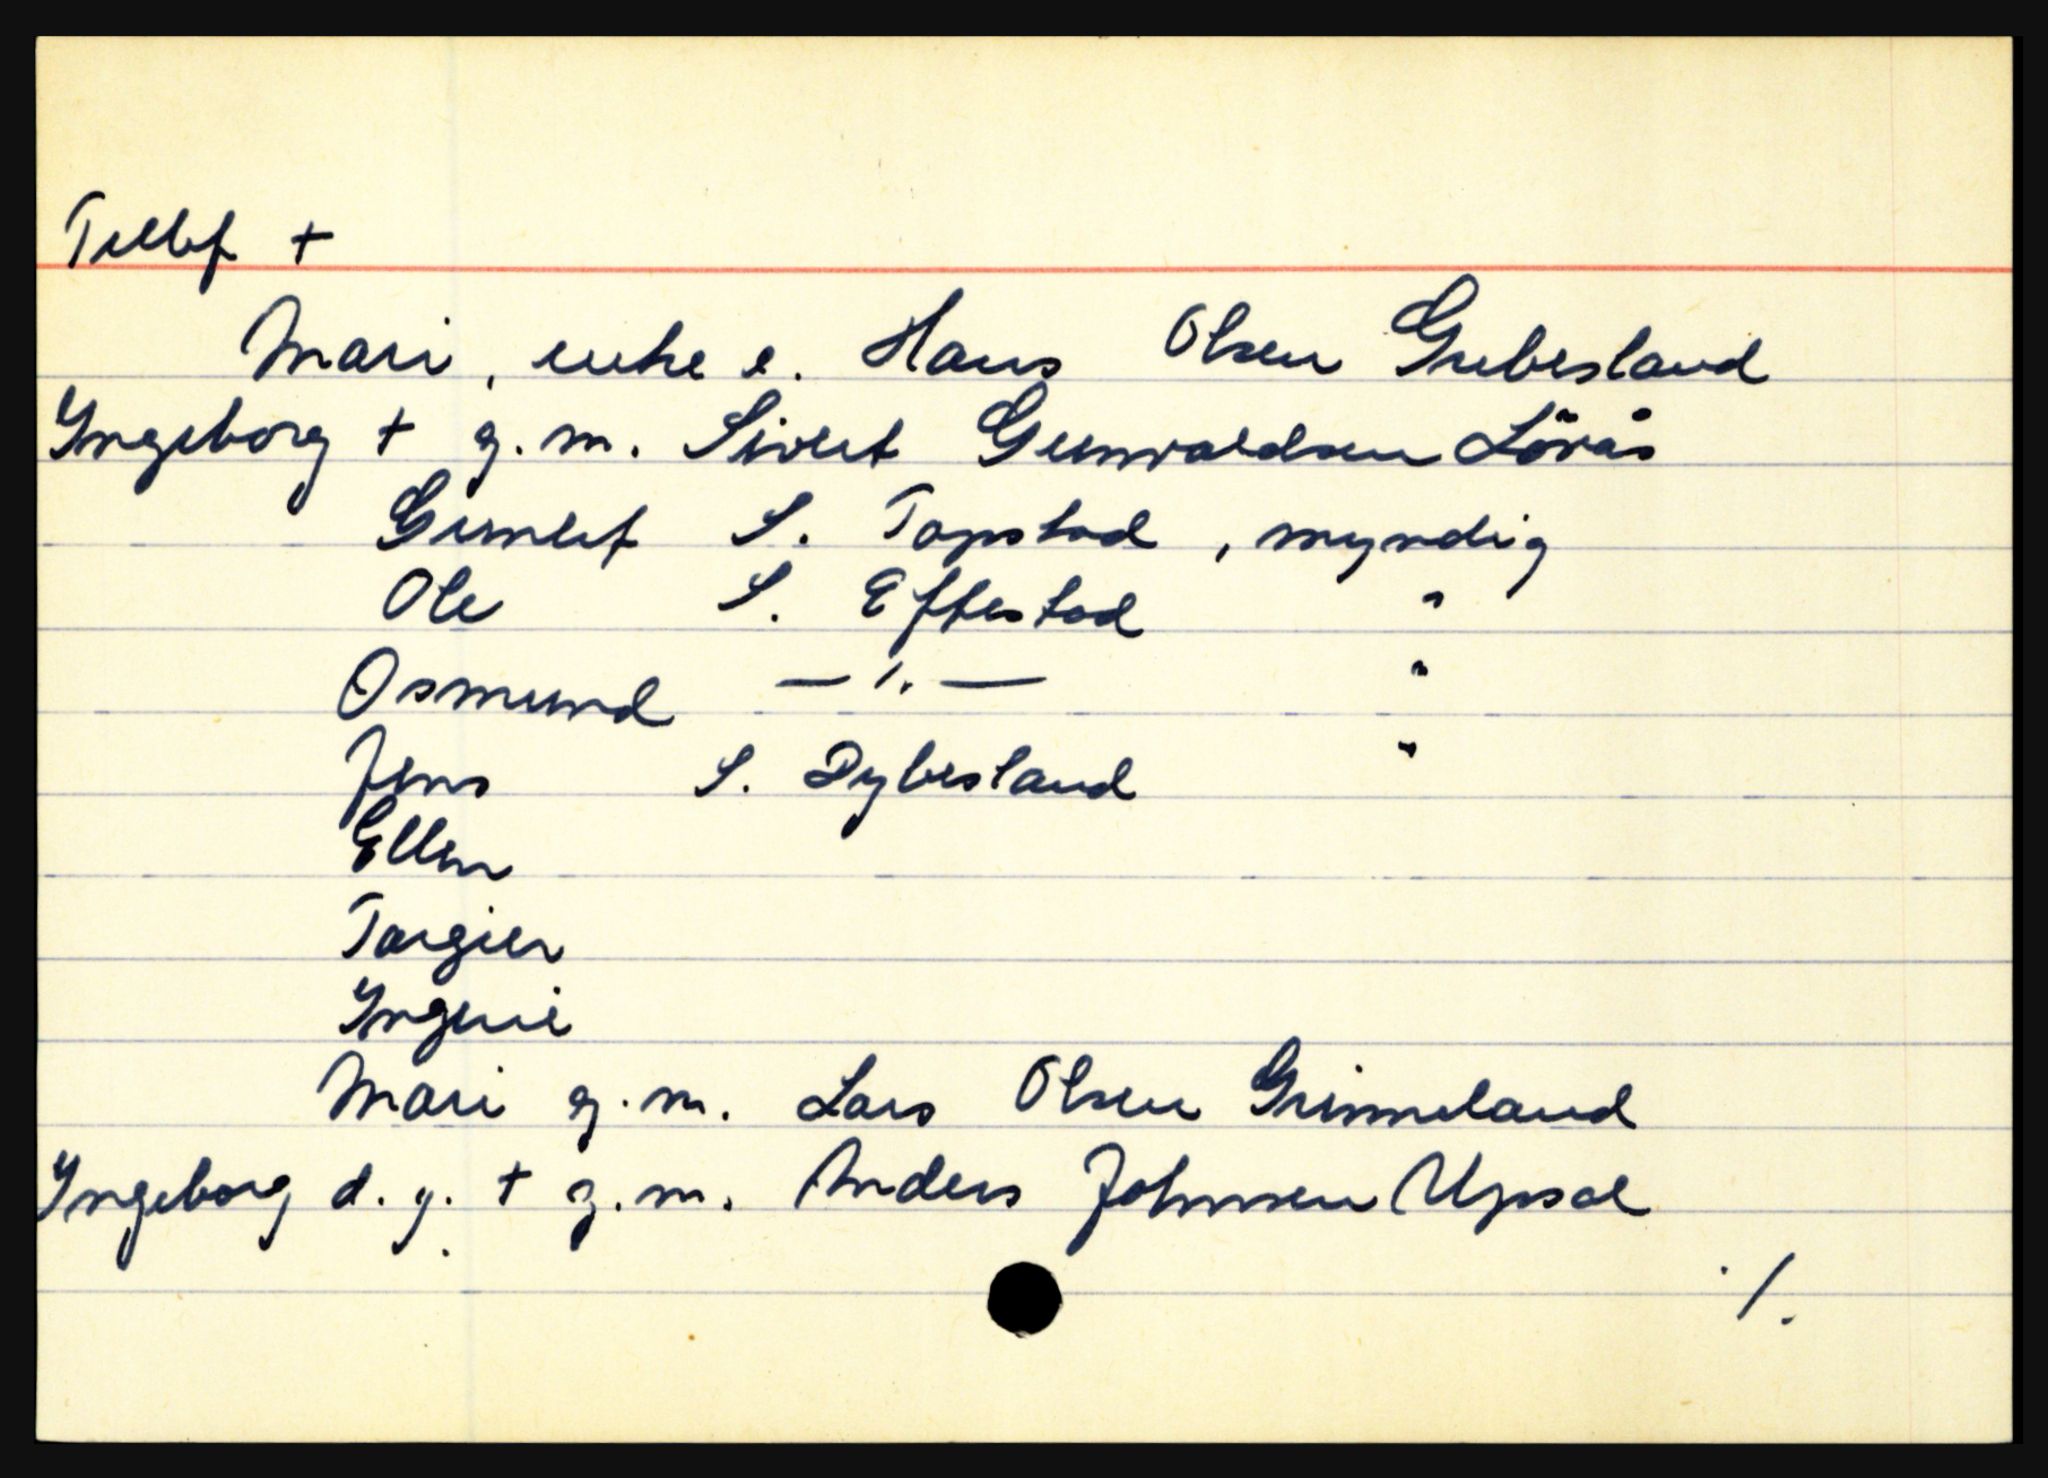 Tellef +
Mari, enke e. Hans Olsen Grebesland
Yngeborg + g. m. Sivert Gunvaldsen Lövås
Gunlef S. Topstad, myndig
Ole S. Eftestad "
Osmund — ". — "
Jens S. Dybesland "
Ellen
Targier
Yngerie
Mari g. m. Lars Olsen Grimmeland
Yngeborg d. y. + g. m. Anders Johnsen Upsal
./.